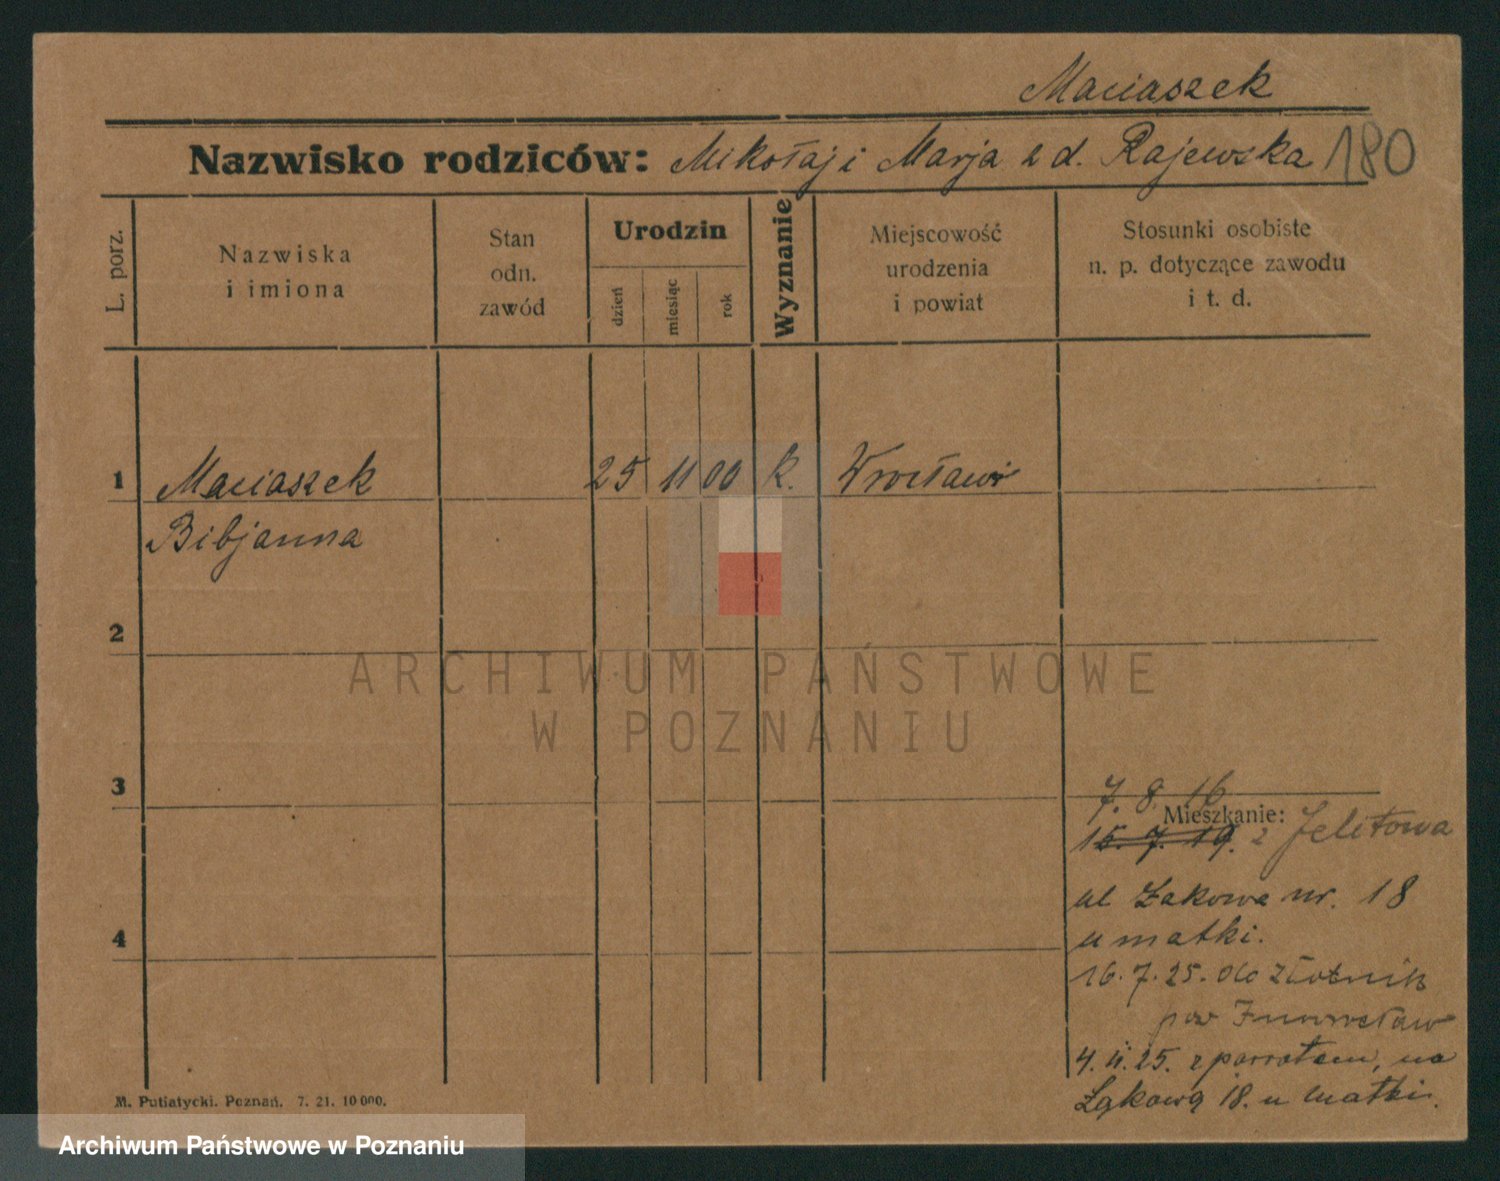 Maciaszek
Nazwisko rodziców: Mikołaj i Marja z d. Rajewska 180
L. porz.
Nazwiska
i imiona
Stan
odn.
zawód
Urodzin
dzień
miesiąc
rok
Wyznanie
Miejscowość
urodzenia
i powiat
Stosunki osobiste
n. p. dotyczące zawodu
i t. d.
1 Maciaszek 25 11 00 k. Wrocławi
Bibjanna
2
ARCHIWUM PAŃSTWOWE
W POZNANIU
3
7. 8. 16
Mieszkanie:
15. 7. 19. z
4
ul Łakowa nr. 18
u matki.
16. 7. 25. do Złotnik
pow Inowrocław
4. 11. 25. z powrotem, na
Łąkową 18. u matki.
M. Putiatycki. Poznań. 7. 21. 10 000.
Archiwum Państwowe w Poznaniu